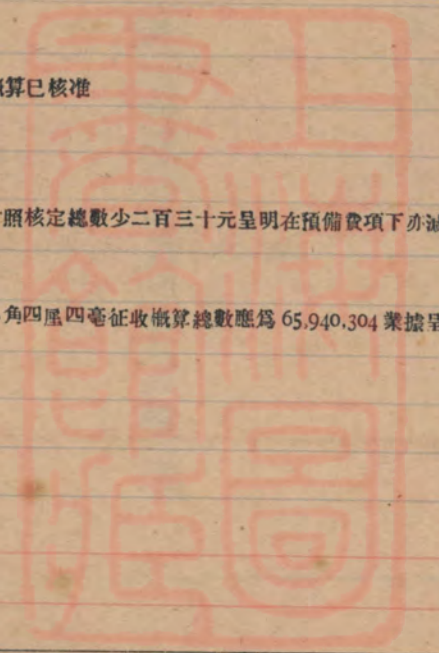 算已核准
照核定總數少二百三十元呈明在預備費項下亦減
角四厘四毫征收概算總數應爲 65,940,304 業據呈
上海圖書館藏